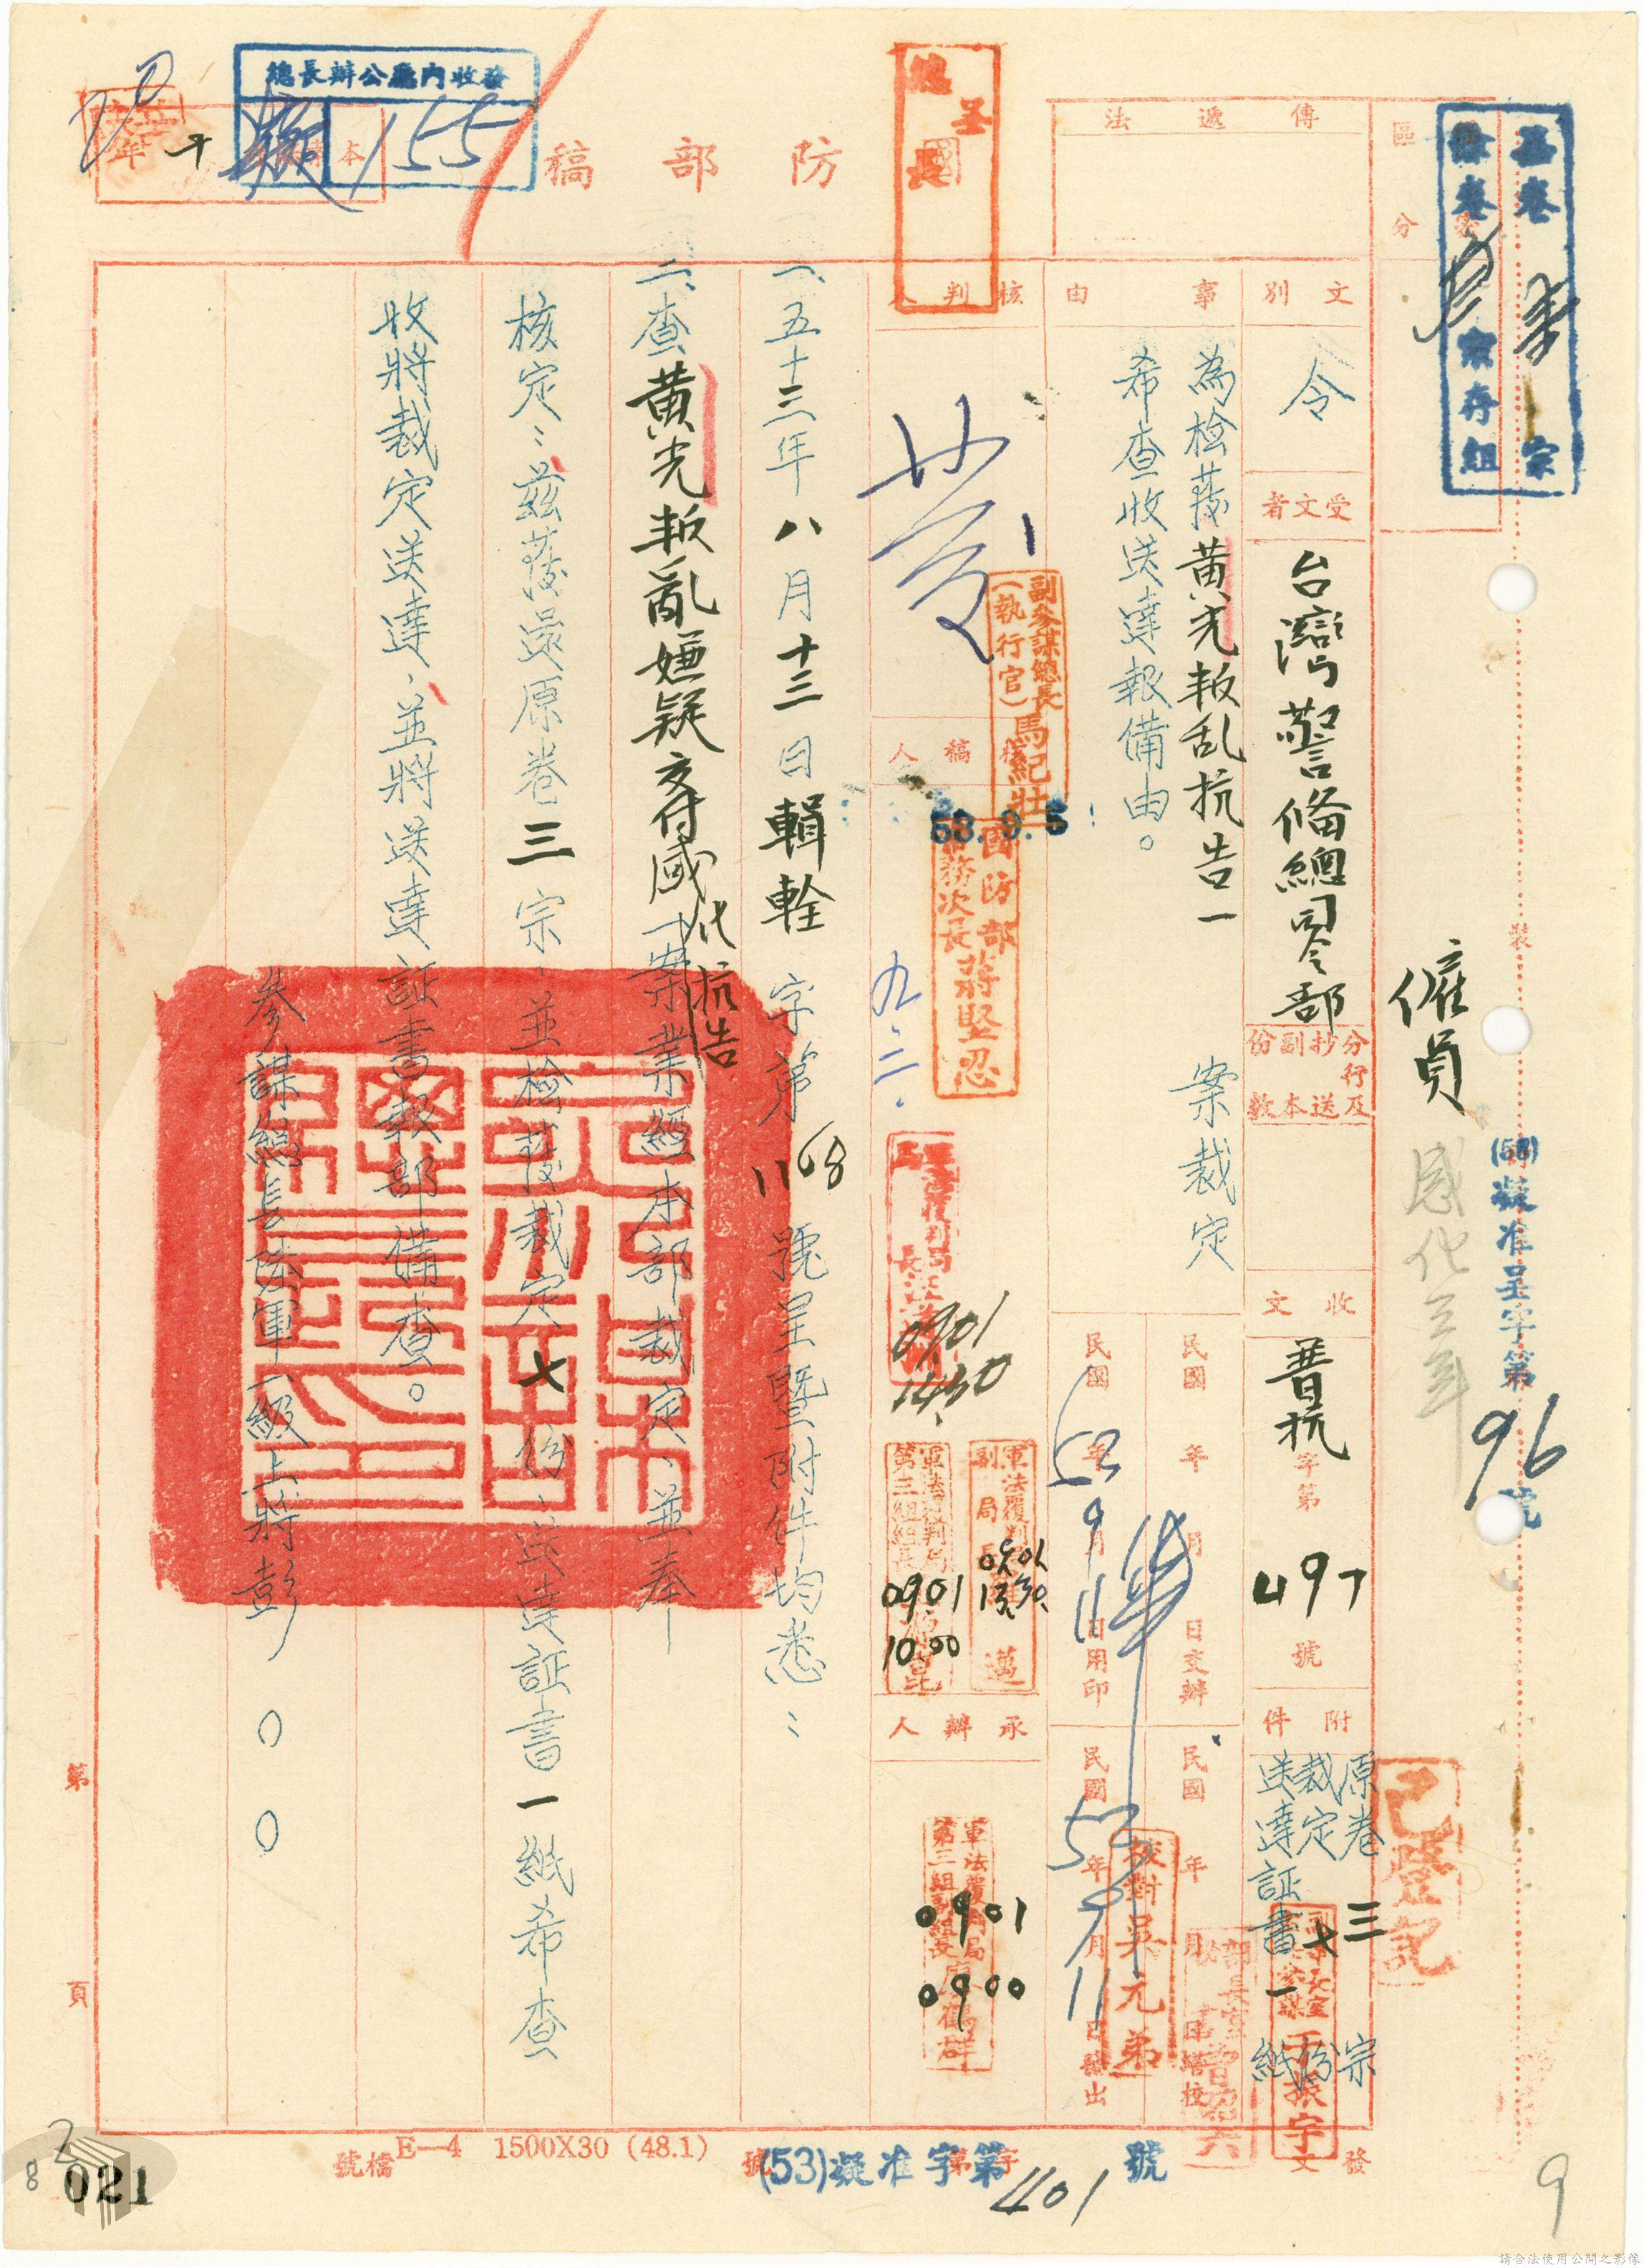 總長辦公廳內收發
155
防部稿
總長
國
傳遞法
區分
本
年
宗卷
宗存組
文別
令
受文者
台灣警備總司令部
分行及
抄副份
送本數
收文
普抗
字第
497
號
附件
原卷三宗
裁定七份
送達証書一紙
事由
為檢發黃光叛乱抗告一案裁定
希查收送達報備由。
民國
年
月
日交辦
民國
53年9月11日用印
民國
年
月
民國
53年9月11日
核判人
副參謀總長
(執行官)馬紀壯
53.9.5
國防部
常務次長蔣堅忍
九.二.
核稿人
0901
1430
軍法覆判局
副局長
邁
第三組組長
0901
10.00
承辦人
軍法覆判局
第三組副組長
0901
0900
核對吳元弟
王振宇
已登記
僱員
感化三年
(53)凝准呈字第96號
裝
一、五十三年八月十三日輯輇字第1168號呈暨附件均悉:
二、查黃光叛亂嫌疑交付感化抗告一案業經本部裁定、並奉
核定:茲發還原卷三宗、並檢發裁定七份、送達証書一紙希查
收將裁定送達、並將送達証書報部備查。
參謀總長陸軍一級上將彭○○
第
頁
號檔E—4 1500X30 (48.1)
(53)凝准字第401號
發文
021
9
請合法使用公開之影像